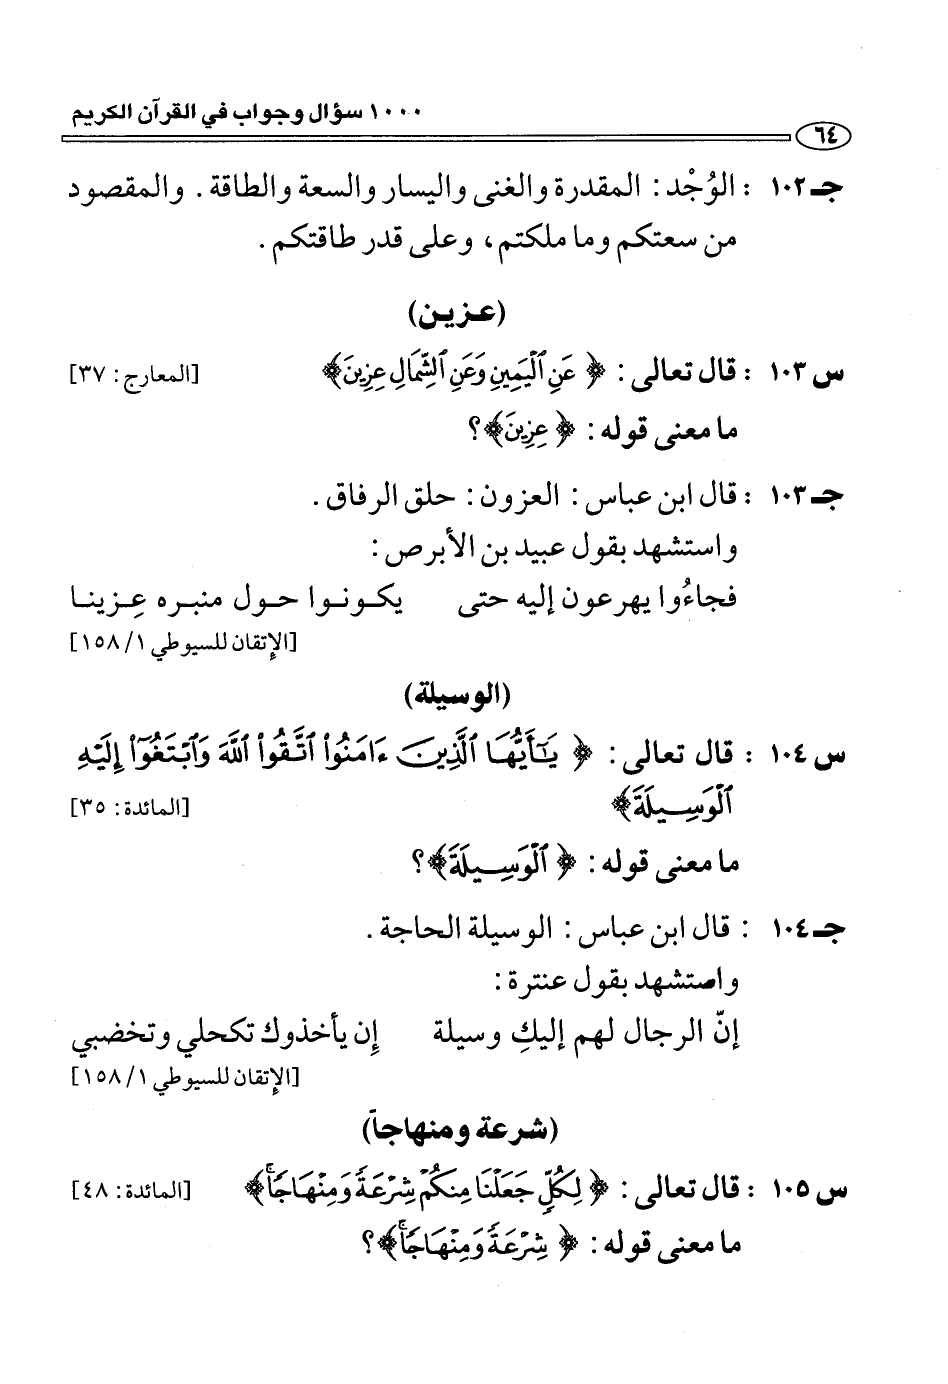 ١٠٠٠ سؤال وجواب في القرآن الكريم
٦٤
جـ١٠٢ : الوُجْد: المقدرة والغنى واليسار والسعة والطاقة. والمقصود
من سعتكم وما ملكتم، وعلى قدر طاقتكم.
(عزين)
س١٠٣ : قال تعالى: ﴿ عَنِ ٱلْيَمِينِ وَعَنِ ٱلشِّمَالِ عِزِينَ﴾ [المعارج: ٣٧]
ما معنى قوله: ﴿ عِزِينَ﴾؟
جـ١٠٣ : قال ابن عباس: العزون: حلق الرفاق.
واستشهد بقول عبيد بن الأبرص:
فجاءُوا يهرعون إليه حتى يكونوا حول منبره عِزينا
[الإتقان للسيوطي ١/ ١٥٨]
(الوسيلة)
س١٠٤ : قال تعالى: ﴿ يَٰٓأَيُّهَا ٱلَّذِينَ ءَامَنُوا۟ ٱتَّقُوا۟ ٱللَّهَ وَٱبْتَغُوٓا۟ إِلَيْهِ
ٱلْوَسِيلَةَ﴾ [المائدة: ٣٥]
ما معنى قوله: ﴿ ٱلْوَسِيلَةَ﴾؟
جـ١٠٤ : قال ابن عباس: الوسيلة الحاجة.
واستشهد بقول عنترة:
إنّ الرجال لهم إليكِ وسيلة إن يأخذوك تكحلي وتخضبي
[الإتقان للسيوطي ١/ ١٥٨]
(شرعة ومنهاجاً)
س١٠٥ : قال تعالى: ﴿ لِكُلٍّ جَعَلْنَا مِنكُمْ شِرْعَةً وَمِنْهَاجًاۚ﴾ [المائدة: ٤٨]
ما معنى قوله: ﴿ شِرْعَةً وَمِنْهَاجًاۚ﴾؟